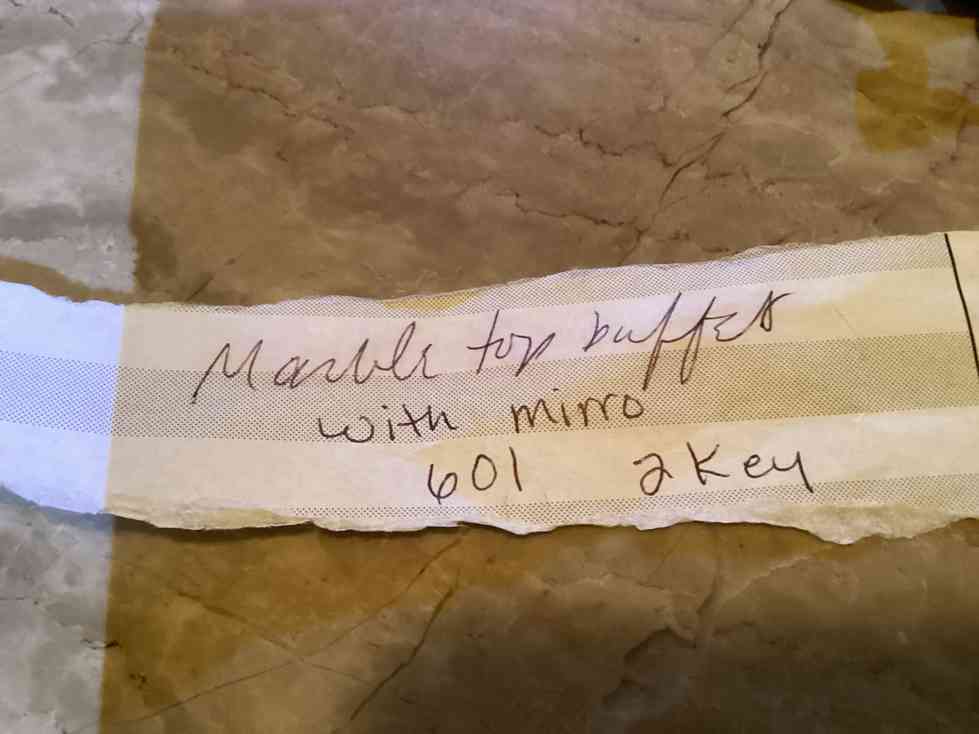 Marble top buffet
with mirro
601 2 Key